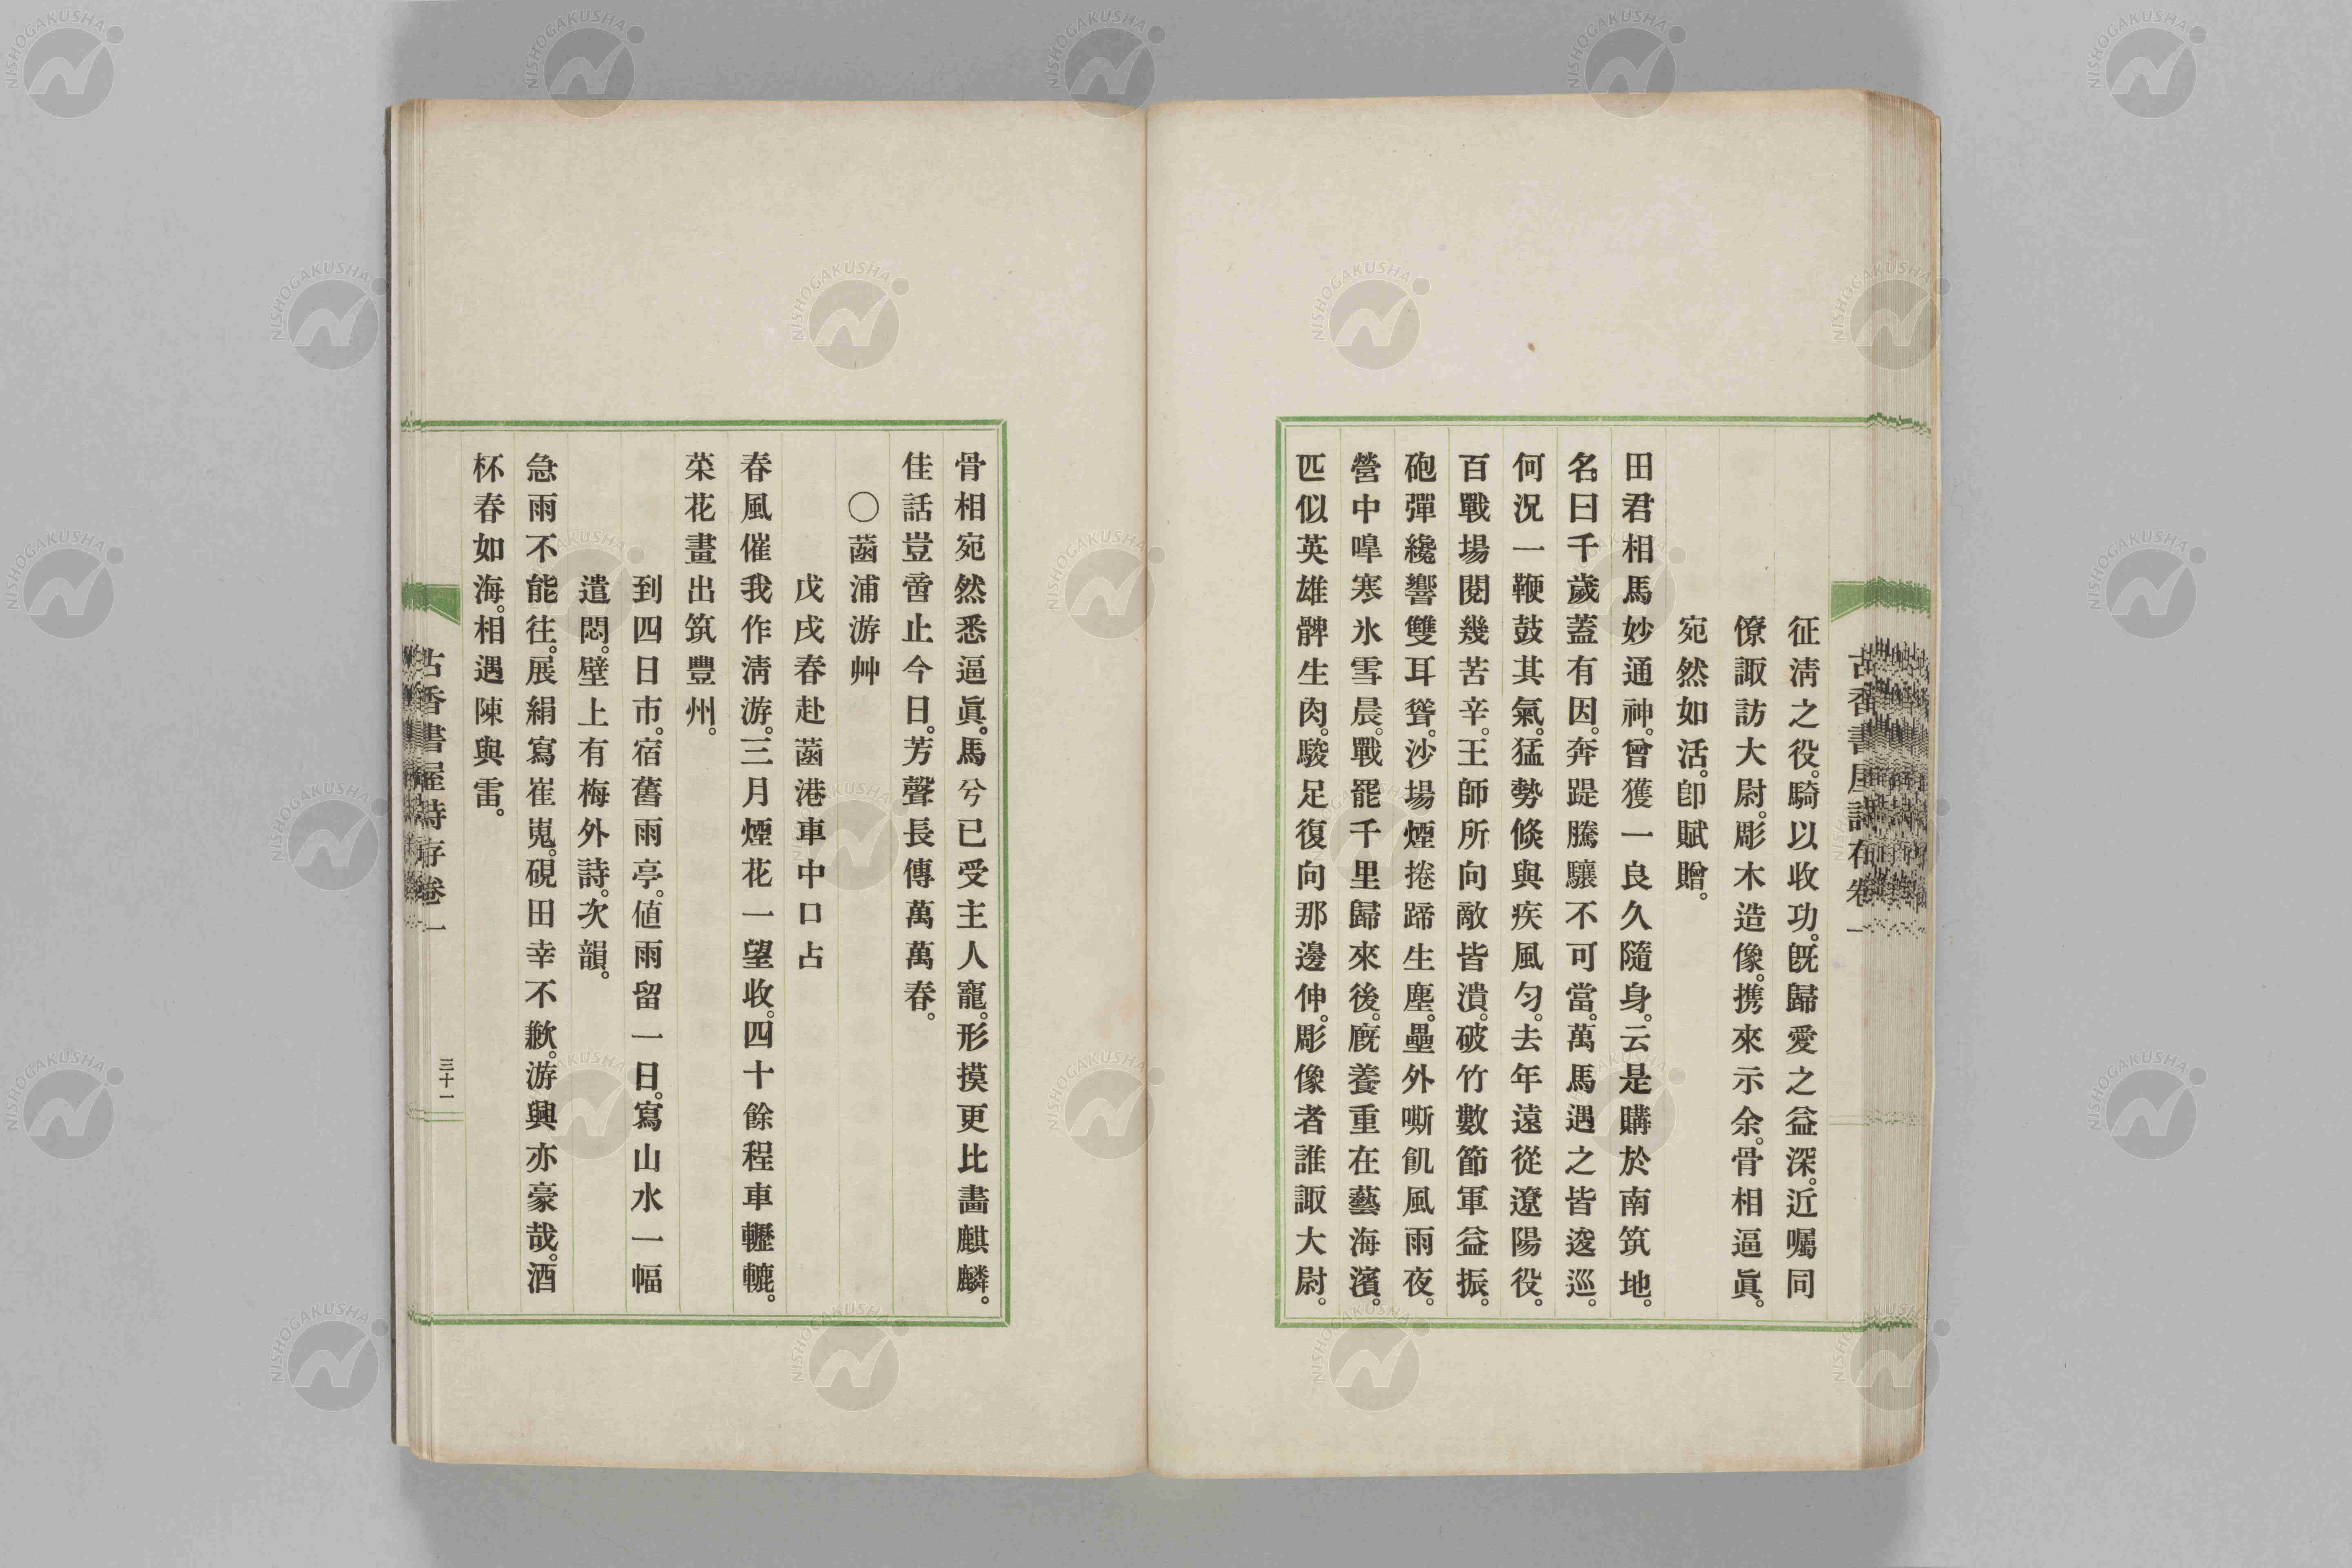 征淸之役。騎以收功。旣歸愛之益深。近囑同
僚諏訪大尉。彫木造像。携來示余。骨相逼眞。
宛然如活。卽賦贈。
田君相馬妙通神。曾獲一良久隨身。云是購於南筑地。
名曰千歲蓋有因。奔踶騰驤不可當。萬馬遇之皆逡巡。
何況一鞭鼓其氣。猛勢倐與疾風匀。去年遠從遼陽役。
百戰場閱幾苦辛。王師所向敵皆潰。破竹數節軍益振。
砲彈纔響雙耳聳。沙場煙捲蹄生塵。壘外嘶飢風雨夜。
營中嘷寒氷雪晨。戰罷千里歸來後。廐養重在藝海濱。
匹似英雄髀生肉。駿足復向那邊伸。彫像者誰諏大尉。
骨相宛然悉逼眞。馬兮已受主人寵。形摸更比畵麒麟。
佳話豈啻止今日。芳聲長傳萬萬春。
〇菡浦游艸
戊戌春赴菡港車中口占
春風催我作淸游。三月煙花一望收。四十餘程車轣轆。
菜花畫出筑豐州。
到四日市。宿舊雨亭。値雨留一日。寫山水一幅
遣悶。壁上有梅外詩。次韻。
急雨不能往。展絹寫崔嵬。硯田幸不歉。游興亦豪哉。酒
杯春如海。相遇陳與雷。
古香書屋詩存卷一
三十一
NISHOGAKUSHA